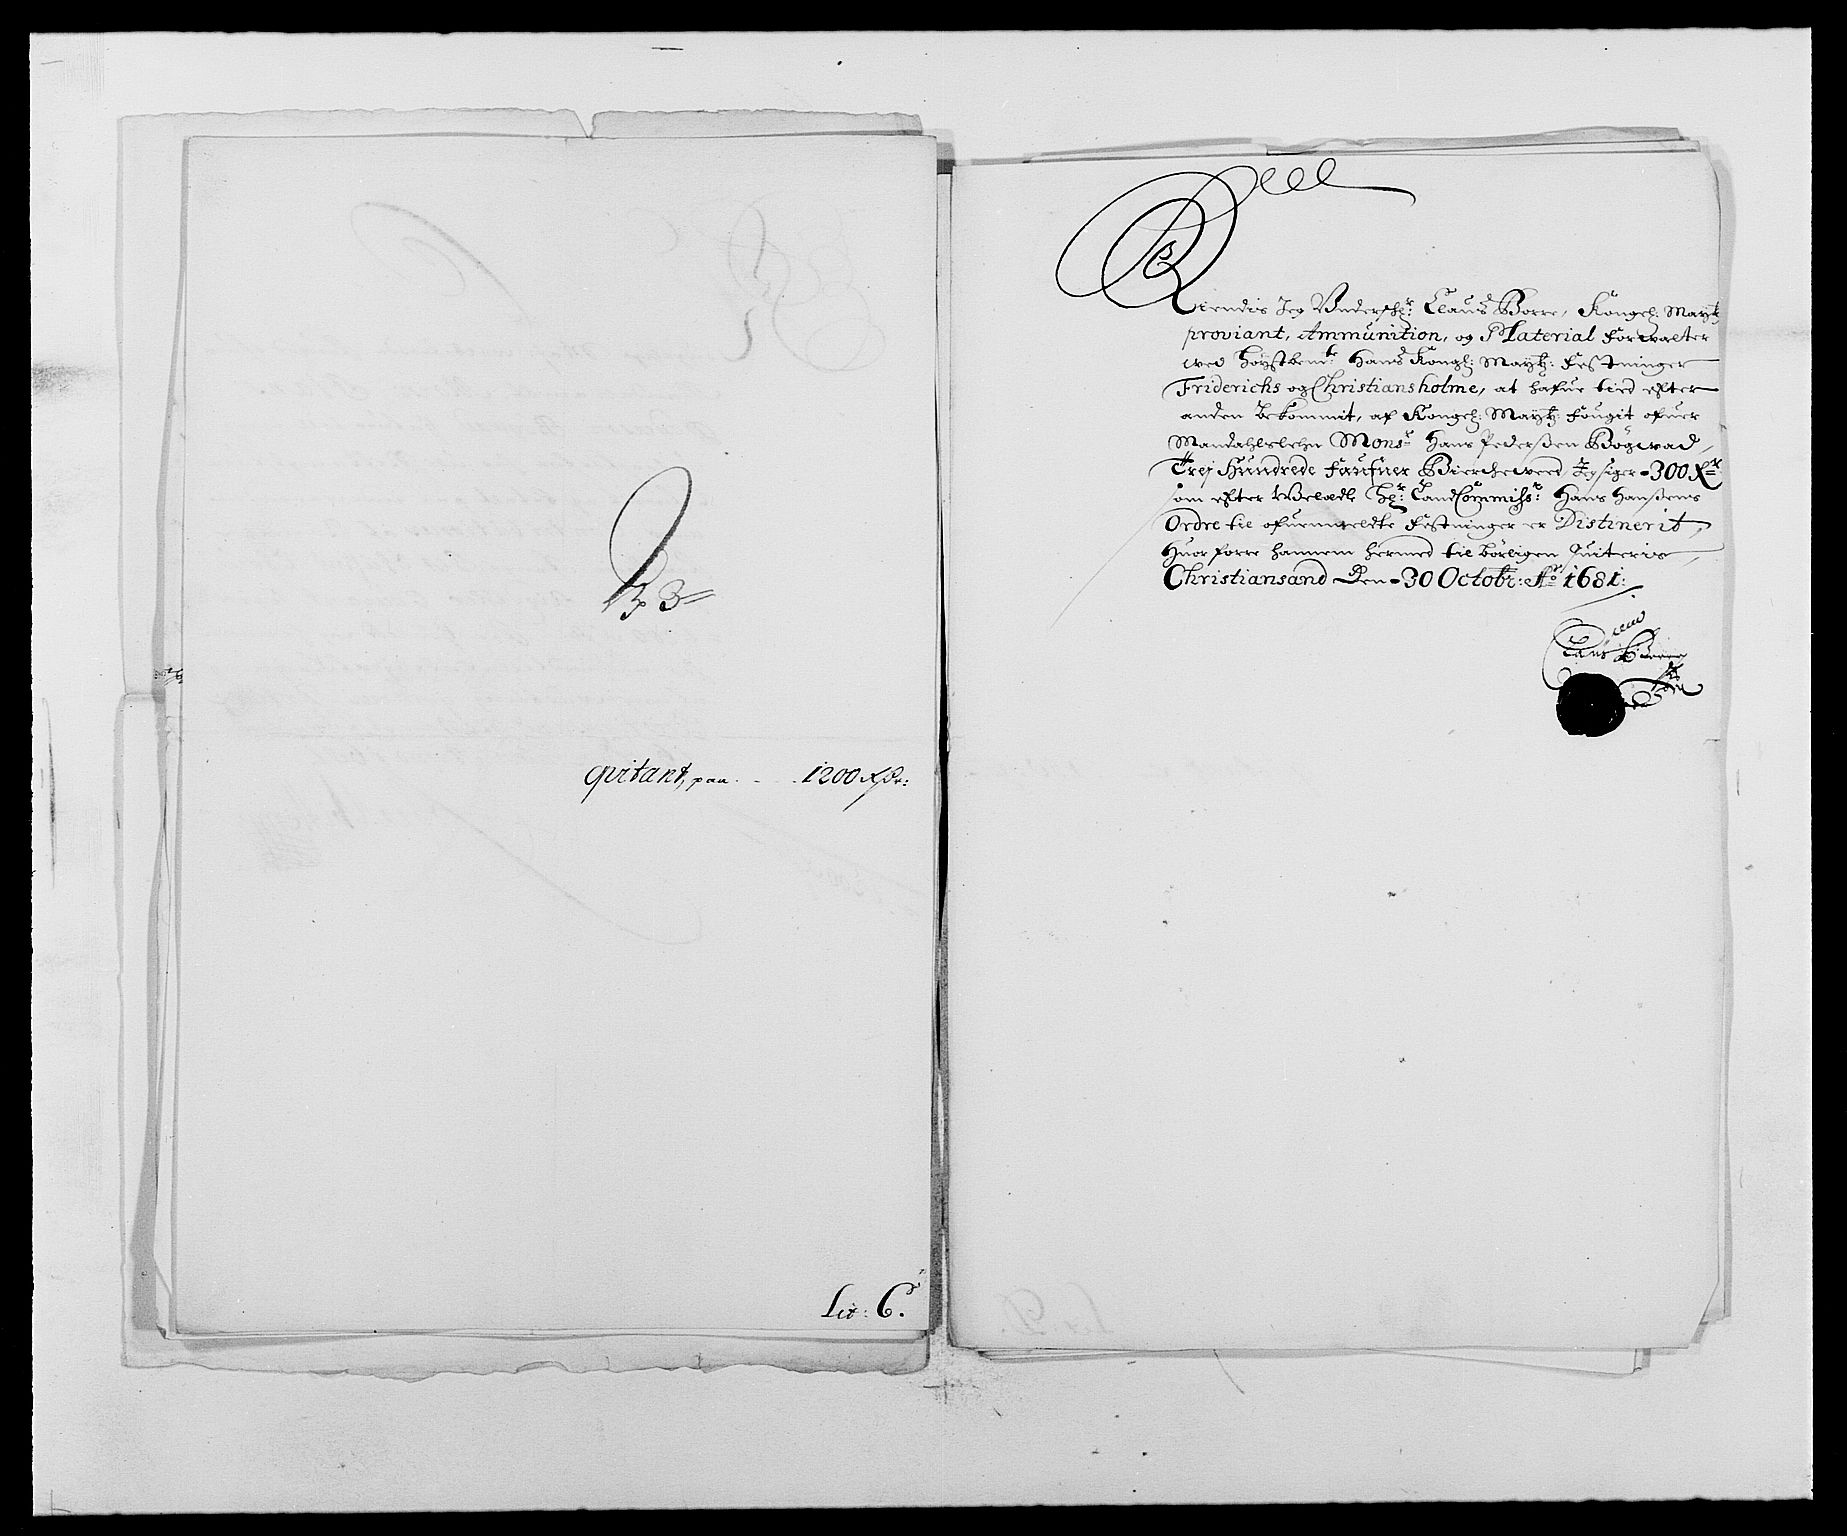 No 3
qvitant, paa . . . 1200 Rdr:
Lit: C.
Kiendis Jeg Underschr: Claus Borre, Kongel: Maytz
proviant, Ammunition, og Material Forvalter
ved höystbemte: Hans Kongl: Maytz: Festninger
Friderichs og Christiansholme, at hafue tied efter
anden bekommit, af Kongel: Maytz: Fougit ofuer
Mandahlslehn Monsr Hans Pederßen Bögvad,
Trej Hundrede Faufner Bierchewed, Jeg siger - 300 Fr
som efter Welædle Hr: LandCommissr: Hans Hanßens
Ordre til ofuermeldte Festninger er Distinerit,
Huor forre hannem hermed til börligen Quiteris
Christiansand Den - 30 Octobr: Ao 1681:
Claus Borre